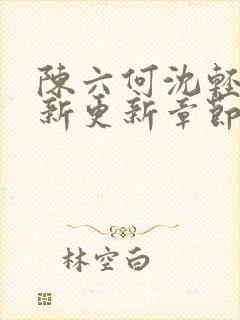 陳六何沈輕
新更新章節
林空白